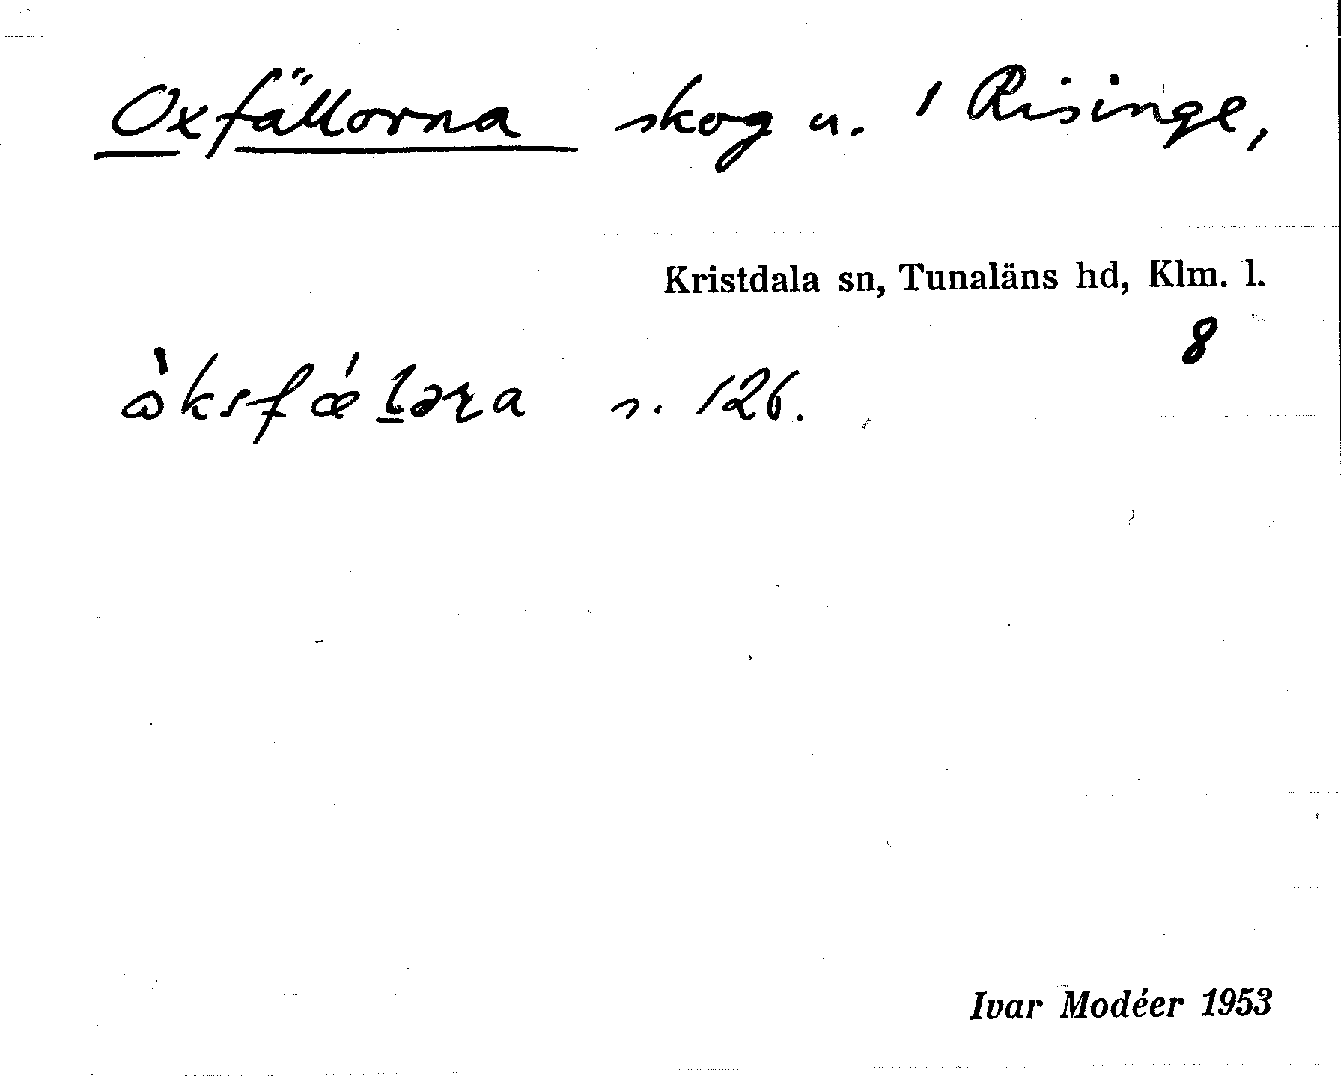 Oxfällorna skog u. 1 Risinge,
Kristdala sn, Tunaläns hd, Klm. l.
8
s. 126.
Ivar Modéer 1953